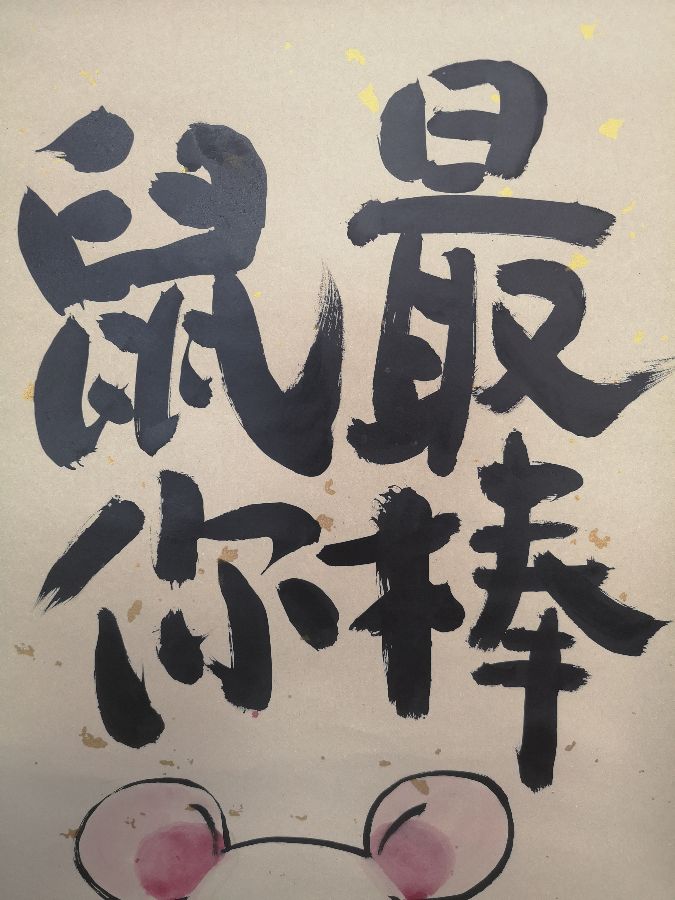 鼠你
最棒